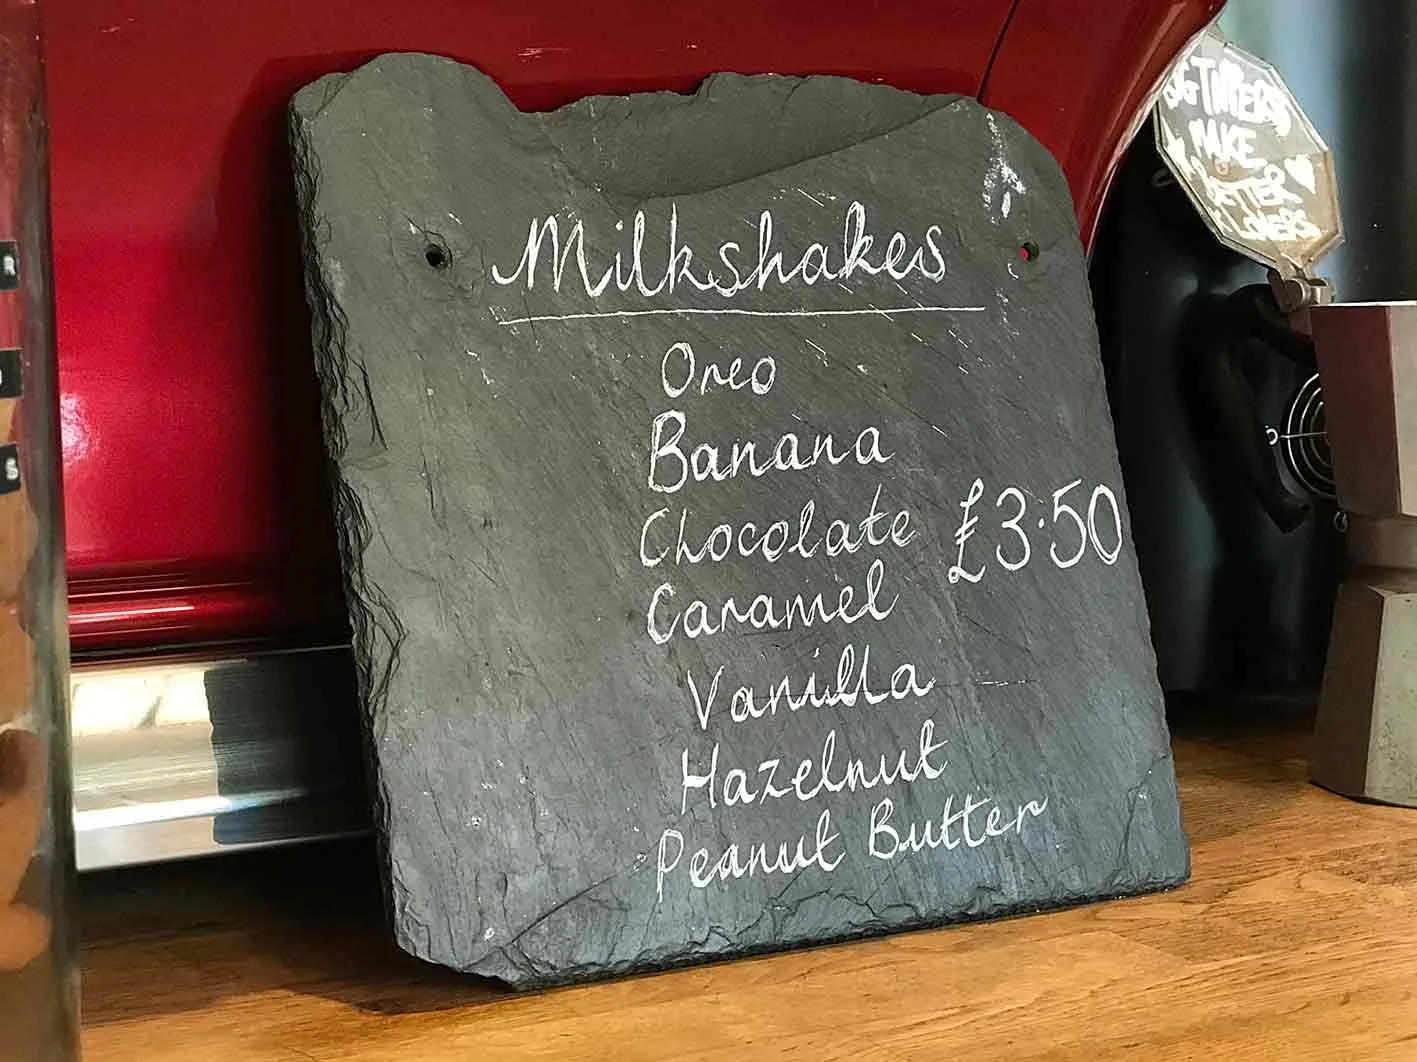 Milkshakes
Oreo
Banana
Chocolate £3.50
Caramel
Vanilla
Hazelnut
Peanut Butter
MAKE
LOVERS
R
S